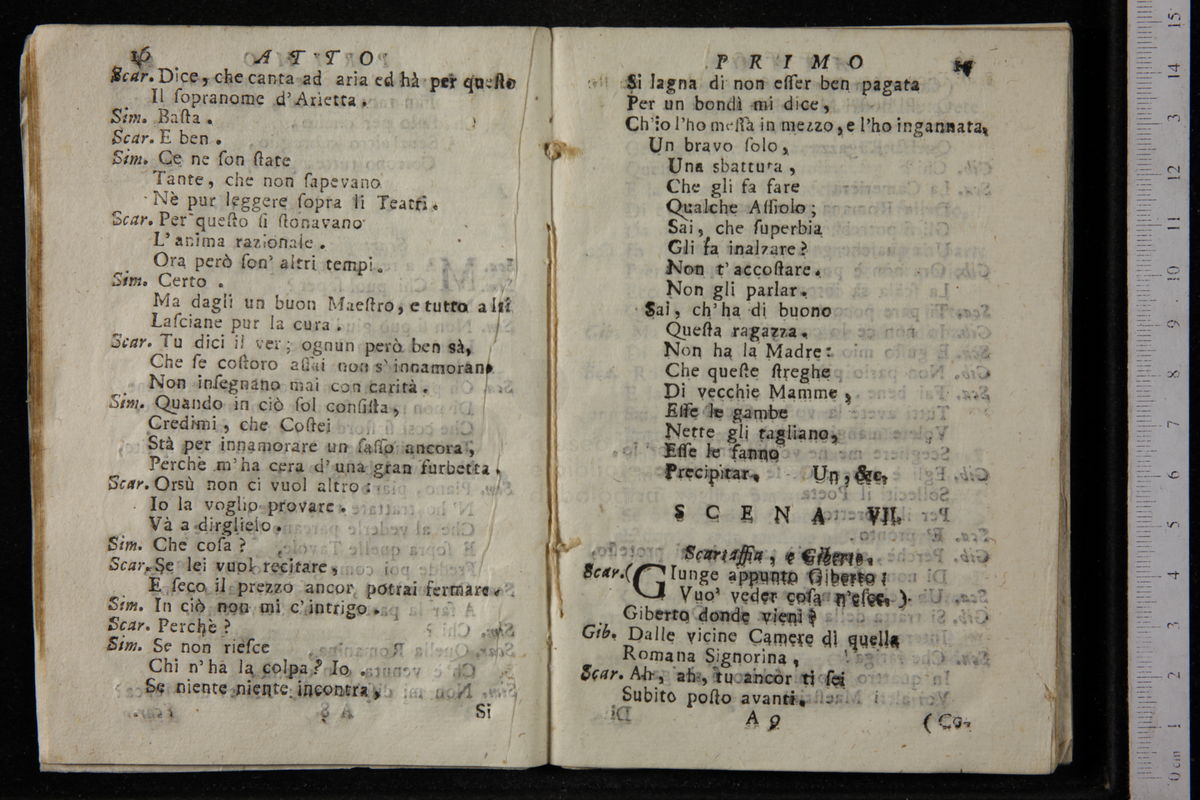 16 ATTO
Scar. Dice, che canta ad aria ed hà per questo
Il sopranome d'Arietta.
Sim. Basta.
Scar. E ben.
Sim. Ce ne son state
Tante, che non sapevano
Nè pur leggere sopra li Teatri.
Scar. Per questo si stonavano
L'anima razionale.
Ora però son' altri tempi.
Sim. Certo.
Ma dagli un buon Maestro, e tutto a lui
Lasciane pur la cura.
Scar. Tu dici il ver; ognun però ben sà,
Che se costoro assai non s'innamorano
Non insegnano mai con carità.
Sim. Quando in ciò sol consista,
Credimi, che Costei
Stà per innamorare un sasso ancora,
Perchè m'ha cera d'una gran furbetta.
Scar. Orsù non ci vuol altro:
Io la voglio provare.
Và a dirglielo.
Sim. Che cosa?
Scar. Se lei vuol recitare,
E seco il prezzo ancor potrai fermare.
Sim. In ciò non mi c'intrigo.
Scar. Perchè?
Sim. Se non riesce
Chi n'hà la colpa? Io.
Se niente niente incontra,
A 8 Si
PRIMO
Si lagna di non esser ben pagata
Per un bondì mi dice,
Ch'io l'ho messa in mezzo, e l'ho ingannata.
Un bravo solo,
Una sbattuta,
Che gli fa fare
Qualche Assiolo;
Sai, che superbia
Gli fa inalzare?
Non t'accostare.
Non gli parlar.
Sai, ch'ha di buono
Questa ragazza.
Non ha la Madre:
Che queste streghe
Di vecchie Mamme,
Esse le gambe
Nette gli tagliano,
Esse le fanno
Precipitar. Un, &c.
SCENA VII.
Scartaffia, e Giberto.
Scar. (Giunge appunto Giberto:
Vuo' veder cosa n'esce. )
Giberto donde vieni?
Gib. Dalle vicine Camere di quella
Romana Signorina,
Scar. Ah, ah, tu ancor ti sei
Subito posto avanti.
A 9 (Co-